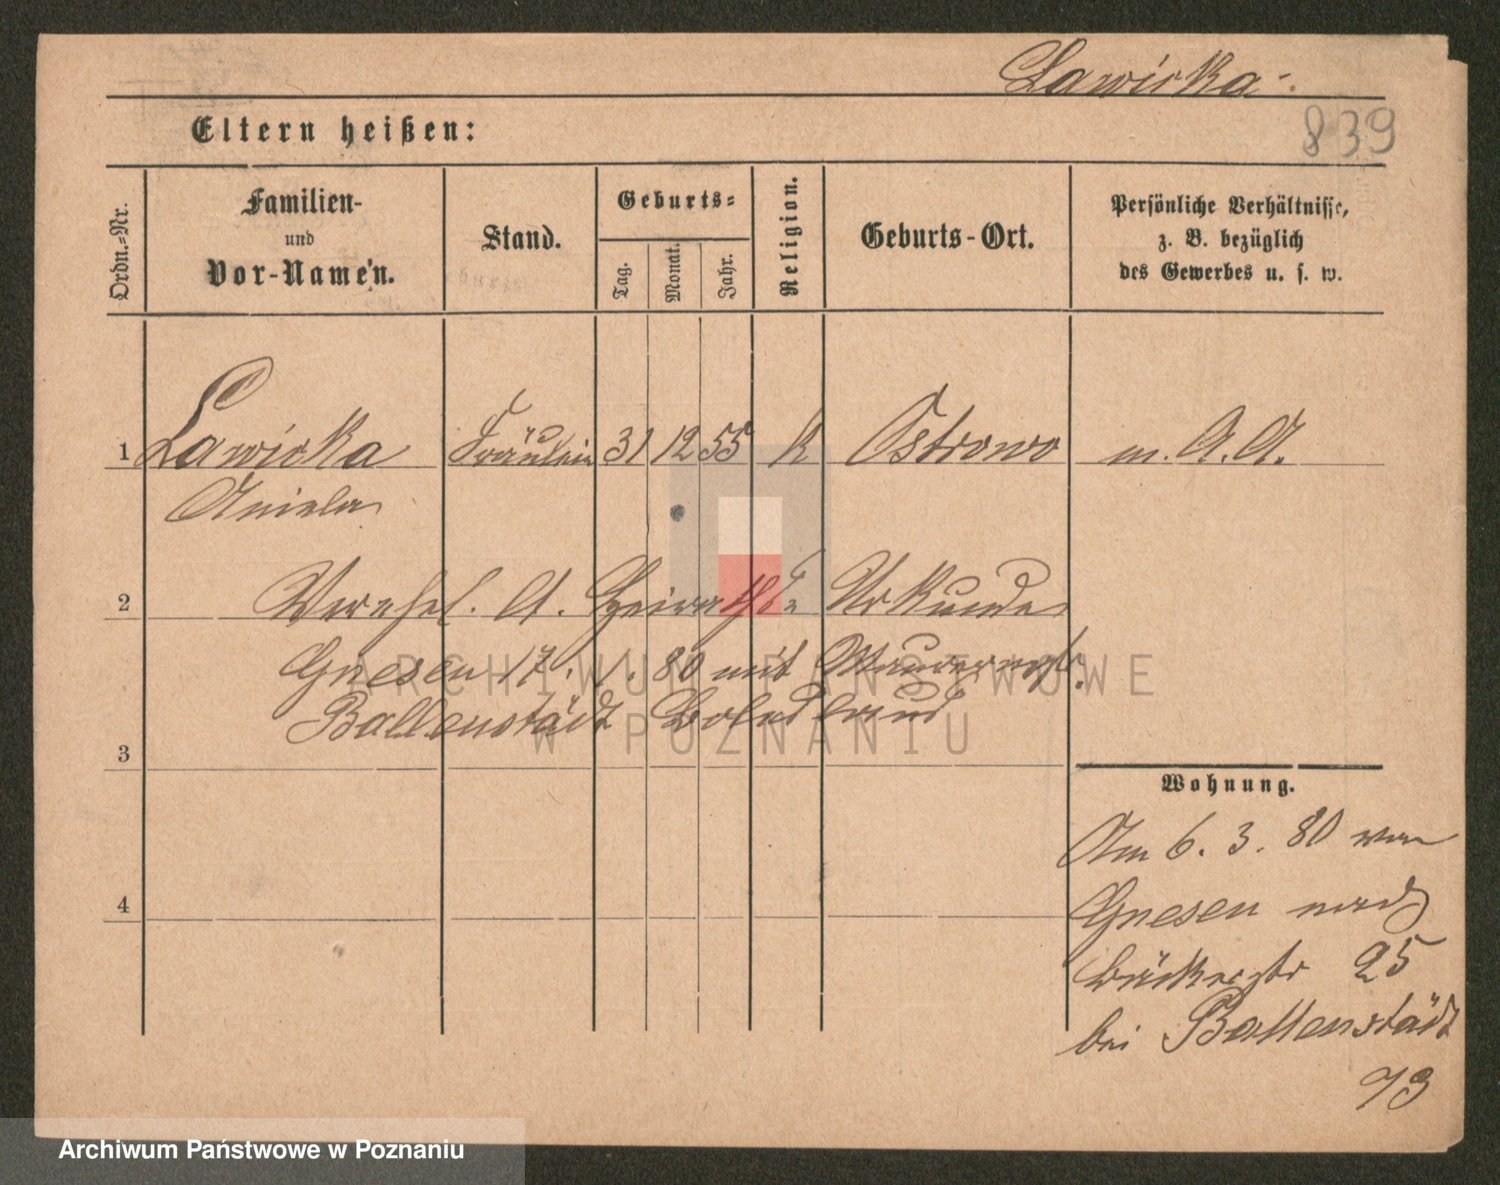 Lawicka.
839
Eltern heißen:
Ordn.-Nr.
Familien-
und
Vor-Namen.
Stand.
Geburts-
Tag.
Monat.
Jahr.
Religion.
Geburts-Ort.
Persönliche Verhältnisse,
z. B. bezüglich
des Gewerbes u. s. w.
1 Lawicka Fräulein 31 12 55 K Ostrowo m. A. A.
Aniela
2 Verehel. A. Heiraths Urkunde
Gnesen 17. 1. 80 mit
Ballenstädt
3
Wohnung.
Am 6. 3. 80 von
4
Gnesen nach
Bäckerstr 25
bei Ballenstädt
73
ARCHIWUM PAŃSTWOWE
W POZNANIU
Archiwum Państwowe w Poznaniu